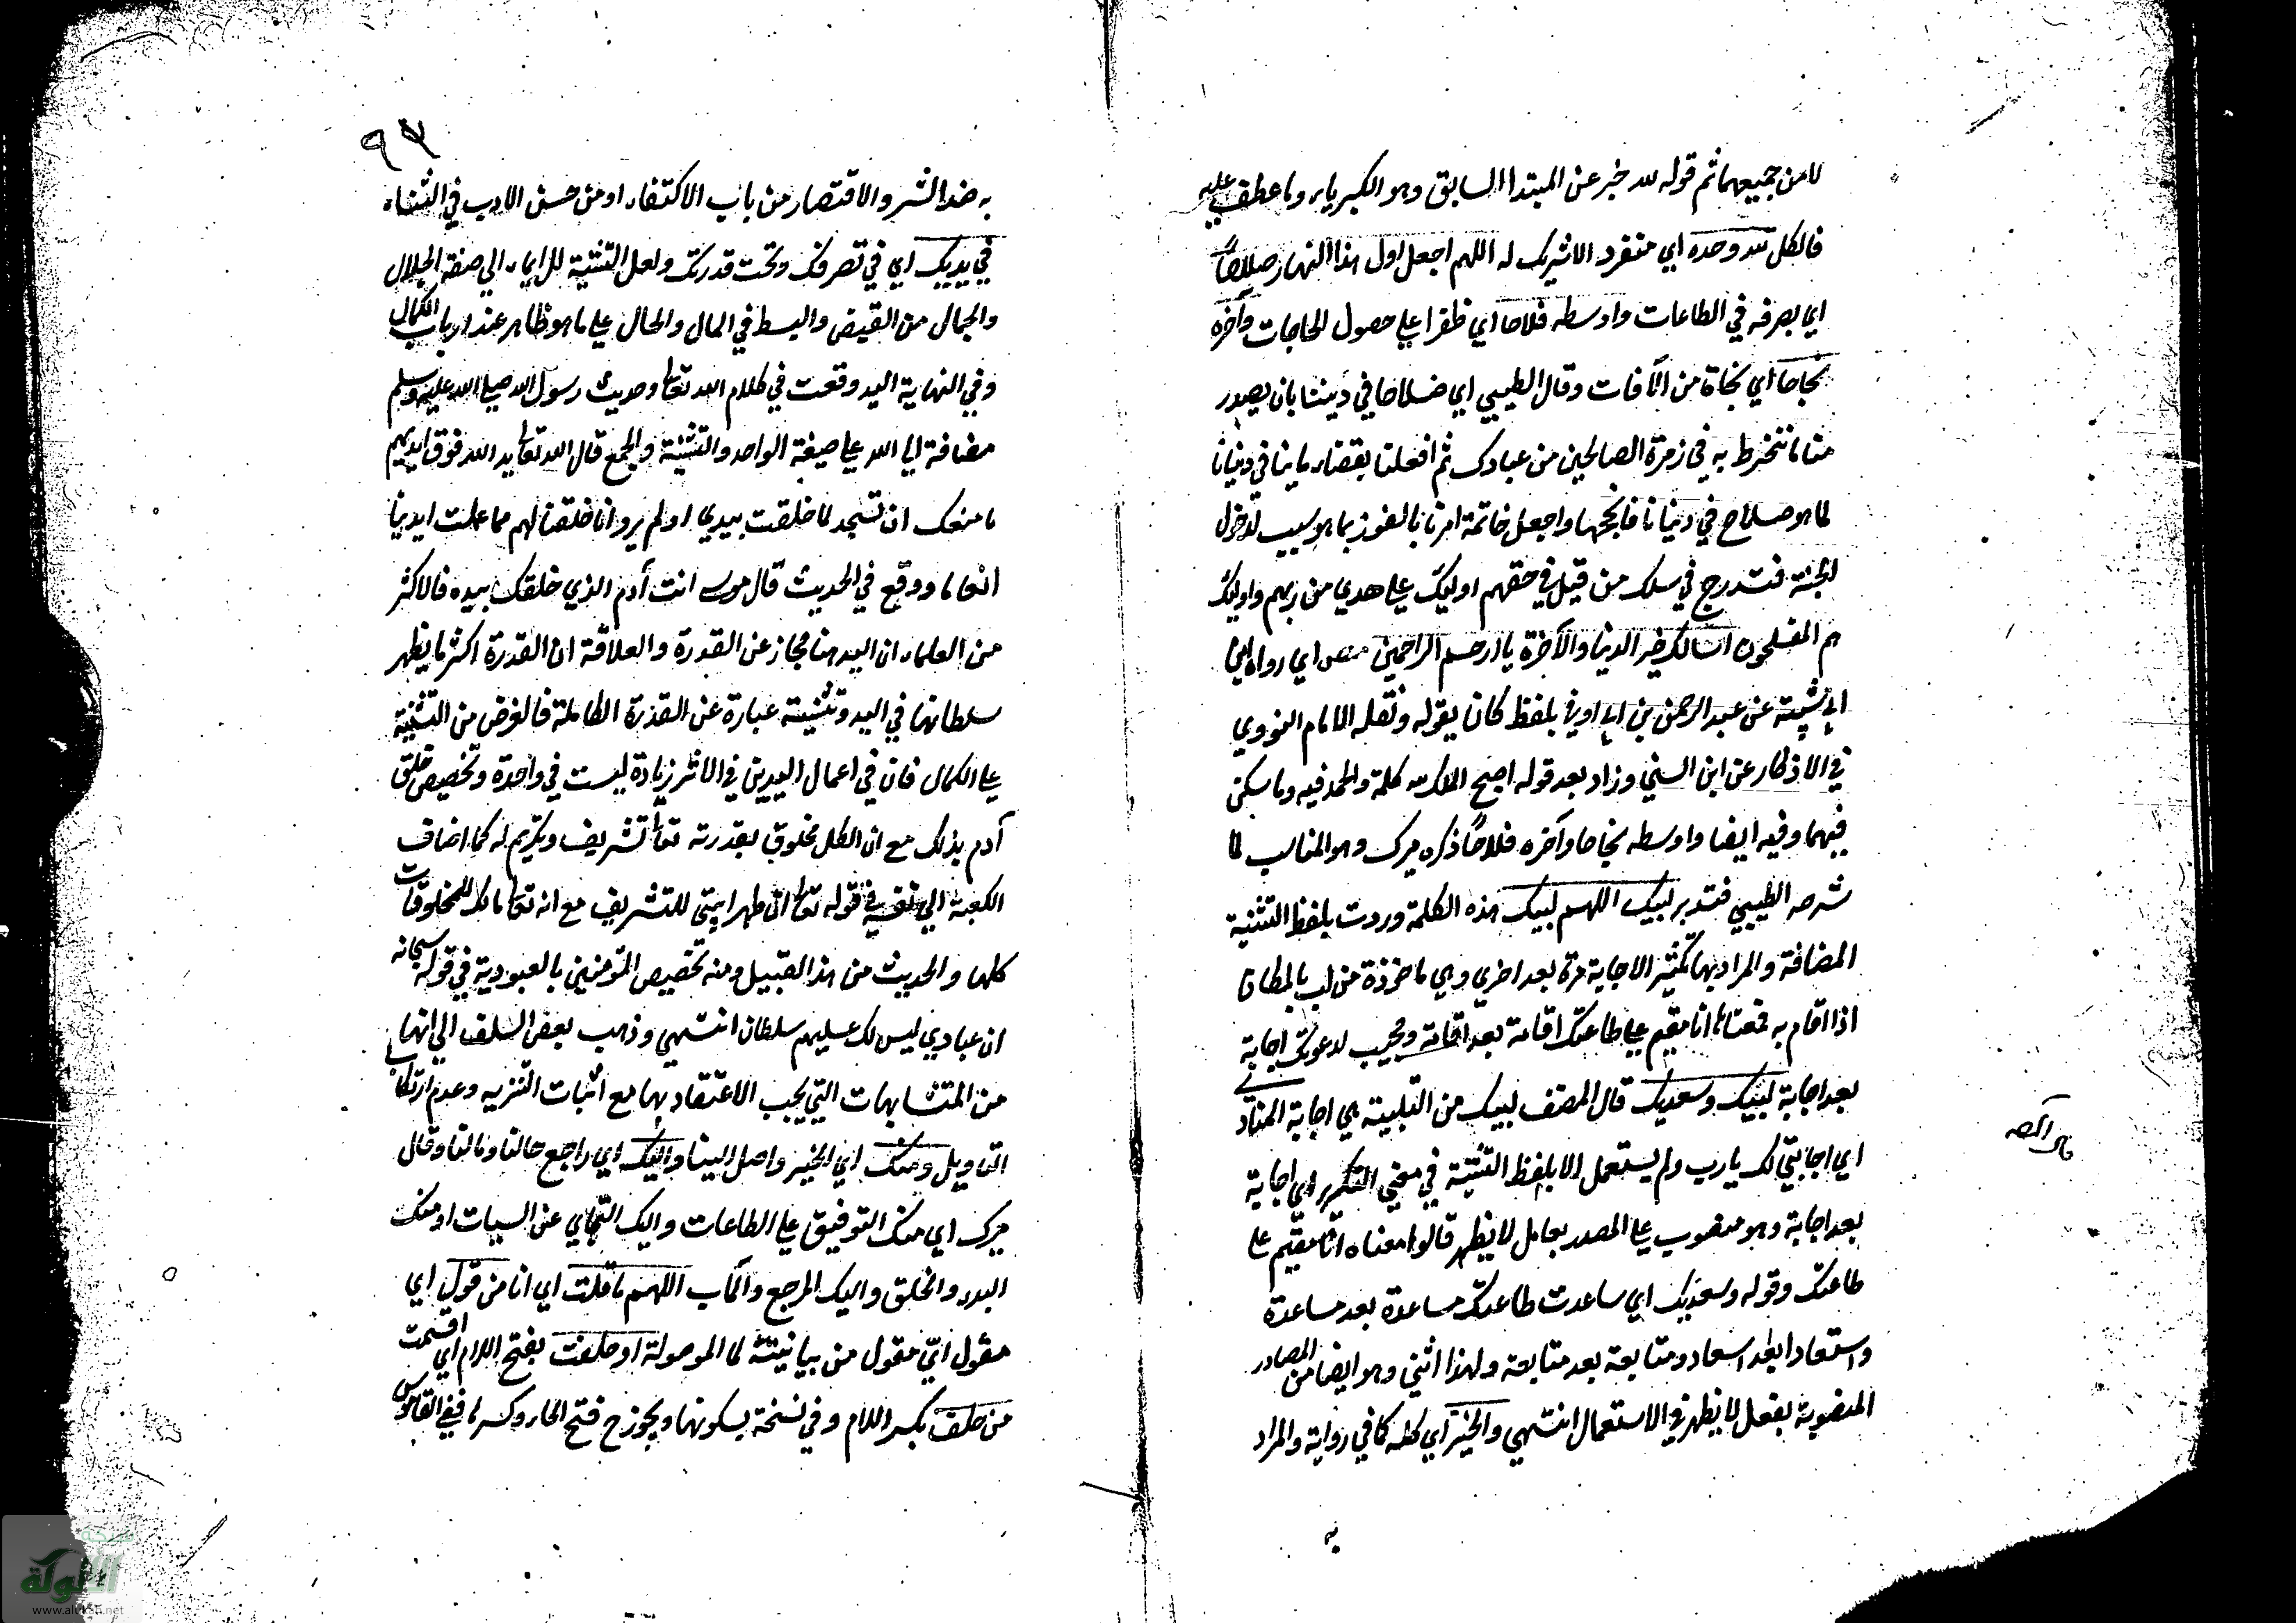 لا من جميعهما ثم قوله لله خبر عن المبتدا السابق وهو الكبرياء وما عطف عليه
فالكل لله وحده اي منفرد الا شريك له اللهم اجعل اول هذا النهار صلاحًا
اي بصرفه في الطاعات واوسطه فلاحا اي ظفرا على حصول الحاجات وآخره
نجاحا اي نجاة من الآفات وقال الطيبي اي صلاحا في ديننا بان يصدر
منا ما ننخرط به في زمرة الصالحين من عبادك ثم بقضاء في دنيانا
لما هو صلاح في دنيانا فانجحها واجعل خاتمة امرنا بالفوز بما هو سبب لدخول
الجنة فنندرج في سلك من قيل في حقهم اوليك على هدي من ربهم واوليك
هم المفلحون اسالك خير الدنيا والآخرة يا ارحم الراحمين مص اي رواه ابن
ابي شيبة عن عبد الرحمن بن ابي اوفى بلفظ كان يقوله ونقله الامام النووي
في الاذكار عن ابن السني وزاد بعد قوله اصبح الملك لله كلمة والحمد فيه وما سكن
فيهما وفيه ايضا واوسطه نجاحا وآخره فلاحًا ذكره ميرك وهو المناسب لما
شرحه الطيبي فتدبر لبيك اللهم لبيك هذه الكلمة وردت بلفظ التثنية
المضافة والمراد بها تكثير الاجابة مرة بعد اخري وهي ماخوذة من لب بالمكان
اذا اقام به فمعناه انا مقيم على طاعتك اقامة بعد اقامة ومجيب لدعوتك اجابة
بعد اجابة لبيك وسعديك قال المصنف لبيك من التلبية هي اجابة المنادي
اي اجابتي لك يا رب ولم يستعمل الا بلفظ التثنية في معني التكرير اي اجابة
بعد اجابة وهو منصوب على المصدر بعامل لا يظهر قالوا معناه انا مقيم على
طاعتك وقوله وسعديك اي ساعدت طاعتك مساعدة بعد مساعدة
واسعادا بعد اسعاد ومتابعة بعد متابعة ولهذا اثني وهو ايضا من المصادر
المنصوبة بفعل لا يظهر في الاستعمال انتهي والخير اي كله كما في رواية والمراد
به
قال المص
٩٤
به ضد الشر والاقتصار من باب الاكتفاء او من حسن الادب في الثناء
في يديك اي في تصرفك وتحت قدرتك ولعل التثنية للايماء الي صفة الجلال
والجمال من القبض والبسط في المال والحال على ما هو ظاهر عند ارباب الكمال
وفي النهاية اليد وقعت في كلام الله تعالى وحديث رسول الله صلى الله عليه وسلم
مضافة الى الله على صيغة الواحد والتثنية والجمع قال الله تعالى يد الله فوق ايديهم
ما منعك ان تسجد لما خلقت بيدي اولم يروا انا خلقنا لهم مما عملت ايدينا
انعاما ووقع في الحديث قال موسى انت آدم الذي خلقك بيده فالاكثر
من العلماء ان اليد هنا مجاز عن القدرة والعلاقة ان القدرة اكثر ما يظهر
سلطانها في اليد وتثنيته عبارة عن القدرة الكاملة فالغرض من التثنية
على الكمال فان في اعمال اليدين في الاثر زيادة ليست في واحدة وتخصيص خلق
آدم بذلك مع ان الكل مخلوق بقدرته تعالى تشريف وتكريم له كما اضاف
الكعبة الي نفسه في قوله تعالى ان طهرا بيتي للتشريف مع انه تعالى مالك للمخلوقات
كلها والحديث من هذا القبيل ومنه تخصيص المؤمنين بالعبودية في قوله سبحانه
ان عبادي ليس لك عليهم سلطان انتهي وذهب بعض السلف الي انها
من المتشابهات التي يجب الاعتقاد بها مع اثبات التنزيه وعدم ارتكاب
التاويل ومنك اي الخير واصل الينا واليك اي راجع حالنا ومالنا وقال
ميرك اي منك التوفيق على الطاعات واليك التجاي عن السيات او منك
البدء والخلق واليك المرجع والمآب اللهم ما قلت اي انا من قول اي
مقول اي مقول من بيانية لما الموصولة او حلفت بفتح اللام اي اقسمت
من حلف بكسر اللام وفي نسخة بسكونها ويجوز ح فتح الحاء وكسرها ففي القاموس